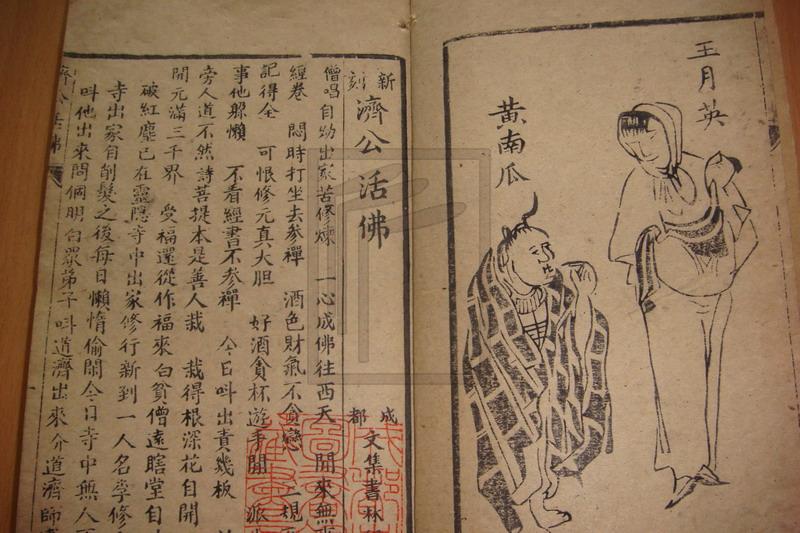 王月英
黃南瓜
新刻
濟公活佛
成都
文集書林
僧唱自幼出家苦修煉 一心成佛往西天 閒來無事
經卷 悶時打坐去參禪 酒色財氣不貪戀 一規
記得全 可恨修元真大胆 好酒貪杯遊手閒 派
事他躲懶 不看經書不参禪 今日叫出責幾板
旁人道不然詩菩提本是善人栽 栽得根深花自開
開元滿三千界 受福還從作福來白貧僧遠瞎堂自
破紅塵已在靈隱寺中出家修行新到一人名李修
寺出家自削髮之後每日懶惰偷閒今日寺中無人
叫他出來問個明白眾弟子叫道濟出來介道濟師
濟公活佛